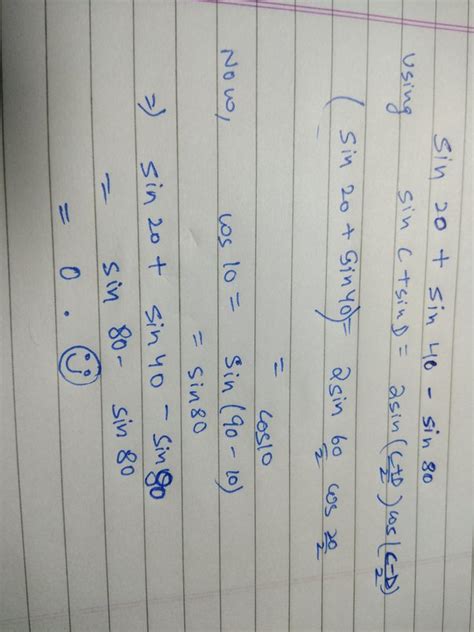 sin 20 + sin 40 - sin 80
using sin C + sin D = 2 sin (C+D/2) cos (C-D/2)
(sin 20 + sin 40) = 2 sin 60/2 cos 20/2
= cos 10
Now, cos 10 = sin (90 - 10)
= sin 80
=) sin 20 + sin 40 - sin 80
= sin 80 - sin 80
= 0 .